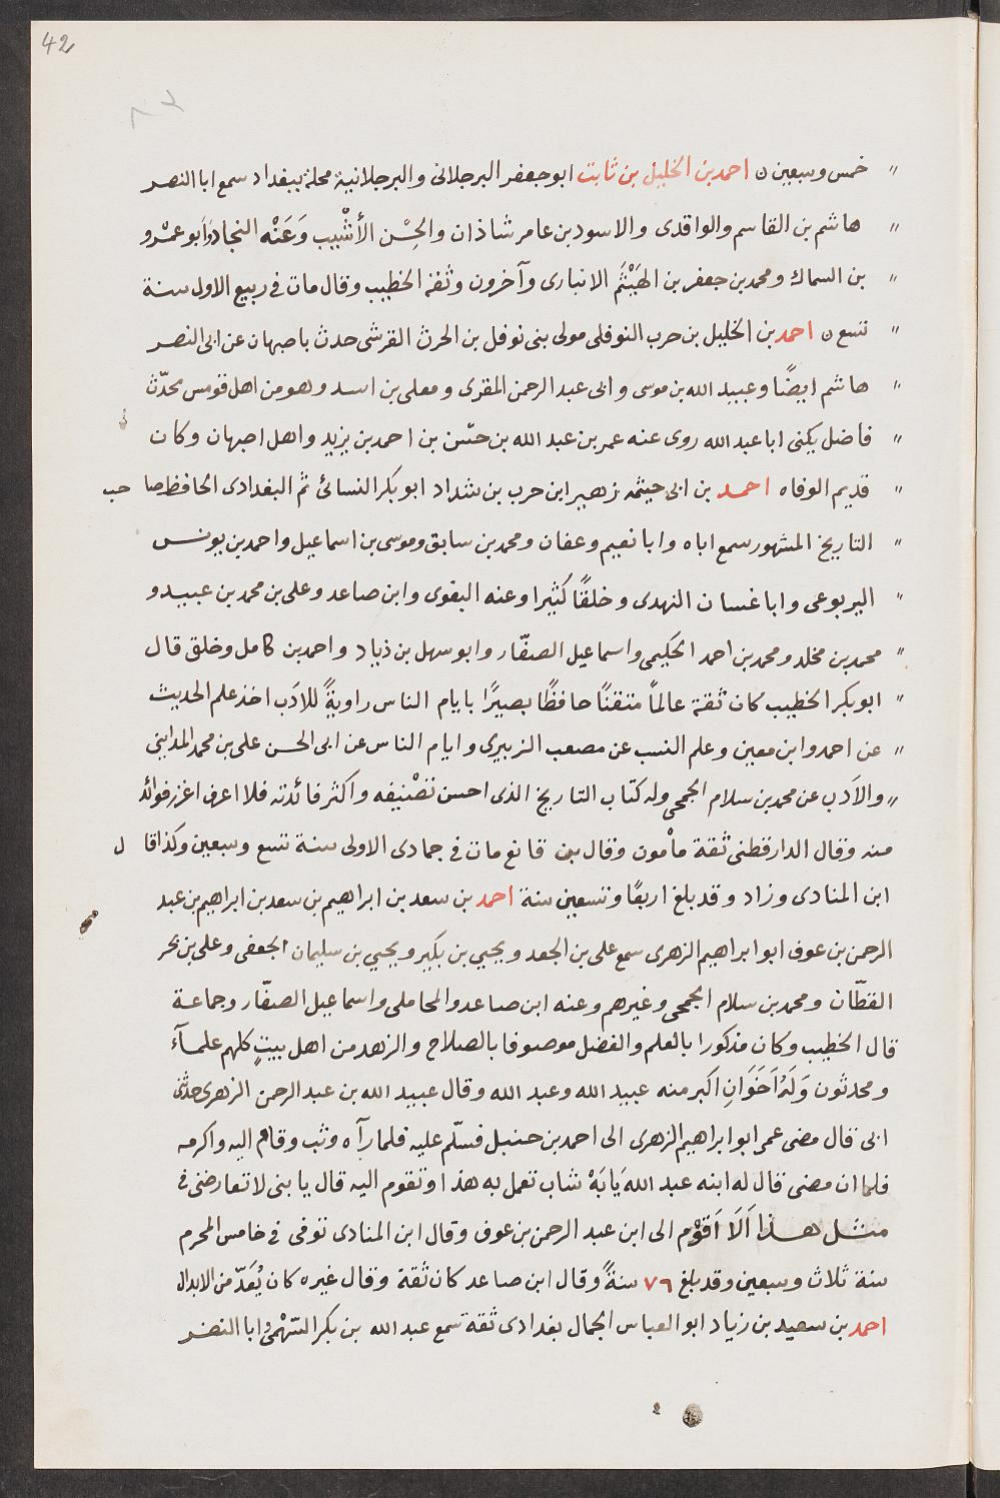 42
٨٢
خمس وسبعين ن احمد بن الخليل بن ثابت ابو جعفر البرجلانى والبرجلانية محلة ببغداد سمع ابا النصر
هاشم بن القاسم والواقدى والاسود بن عامر شاذان والحسْن الأشْيب وَعَنْه النجاد وَابو عمْرو
بن السماك ومحمد بن جعفر بن الهَيْثَم الانبارى وآخرون وثقه الخطيب وقال مات فى ربيع الاول سنة
تسع ن احمد بن الخليل بن حرب النوفلى مولى بنى نوفل بن الحرث القرشى حدث باصبهان عن ابى النصر
هاشم ايضًا وعبيد الله بن موسى وابى عبد الرحمن المقرى ومعلى بن اسد وهو من اهل قومس محدّث
فاضل يكنى ابا عبد الله روى عنه عمر بن عبد الله بن حسّن بن احمد بن يزيد واهل اصبهان وكان
قديم الوفاه احمد بن ابى حيثمه زهير ابن حرب بن شداد ابو بكر النسائئ ثم البغدادى الحافظ صا حب
التاريخ المشهور سمع اباه وابا نعيم وعفان ومحمد بن سابق وموسى بن اسماعيل واحمد بن يونس
اليربوعى وابا غسان النهدى وخلقًا كثيرا وعنه البغوى وابن صاعد وعلى بن محمد بن عبيد و
محمد بن مخلد ومحمد بن احمد الحكيمى واسماعيل الصفّار وابو سهل بن ذياد واحمد بن كامل وخلق قال
ابو بكر الخطيب كان ثقة عالماً متقنًا حافظًا بصيرًا بايام الناس راويةً للادَب اخذ علم الحديث
عن احمد وابن معين وعلم النسب عن مصعب الزبيرى وايام الناس عن ابى الحسن على بن محمد المداينى
والاَدَب عن محمد بن سلام الجمحى وله كتاب التاريخ الذى احسن تصْنيفه واكثر فائدته فلا اعرف اغزر فوائد
منه وقال الدارقطنى ثقة مأمون وقال بن قانع مات فى جمادى الاولى سنة تسع وسبعين وكذا قا ل
ابن المنادى وزاد وقد بلغ اربعًا وتسعين سنة احمد بن سعد بن ابراهيم بن سعد بن ابراهيم بن عبد
الرحمن بن عوف ابو ابراهيم الزهرى سمع على بن الجعد ويحيي بن بكير ويحيي بن سليمان الجعفى وعلى بن بحر
القطّان ومحمد بن سلام الجمحى وغيرهم وعنه ابن صاعد والمحاملى واسماعيل الصفّار وجماعة
قال الخطيب وكان مذكورا بالعلم والفضل موصوفا بالصلاح والزهد من اهل بيتٍ كلهم علمآء
ومحدثون وَلَهُ اَخَوَانِ اكبر منه عبيد الله وعبد الله وقال عبيد الله بن عبد الرحمن الزهرى حدثنى
ابى قال مضى عمى ابو ابراهيم الزهرى الى احمد بن حنبل فسلّم عليه فلما رآه وثب وقام اليه واكرمه
فلما ان مضى قال له ابنه عبد الله يَابَهْ شاب تعمل به هذا وتقوم اليه قال يا بنى لا تعارضنى فى
مثل هذا اَلَا اَقوْم الى ابن عبد الرحمن بن عوف وقال ابن المنادى توفى فى خامس المحرم
سنة ثلاث وسبعين وقد بلغ ٧٦ سنةً وقال ابن صاعد كان ثقة وقال غيره كان يُعَدّ من الابدال
احمد بن سعيد بن زياد ابو العباس الجمال بغدادى ثقة سمع عبد الله بن بكر السّهْمى وابا النضر